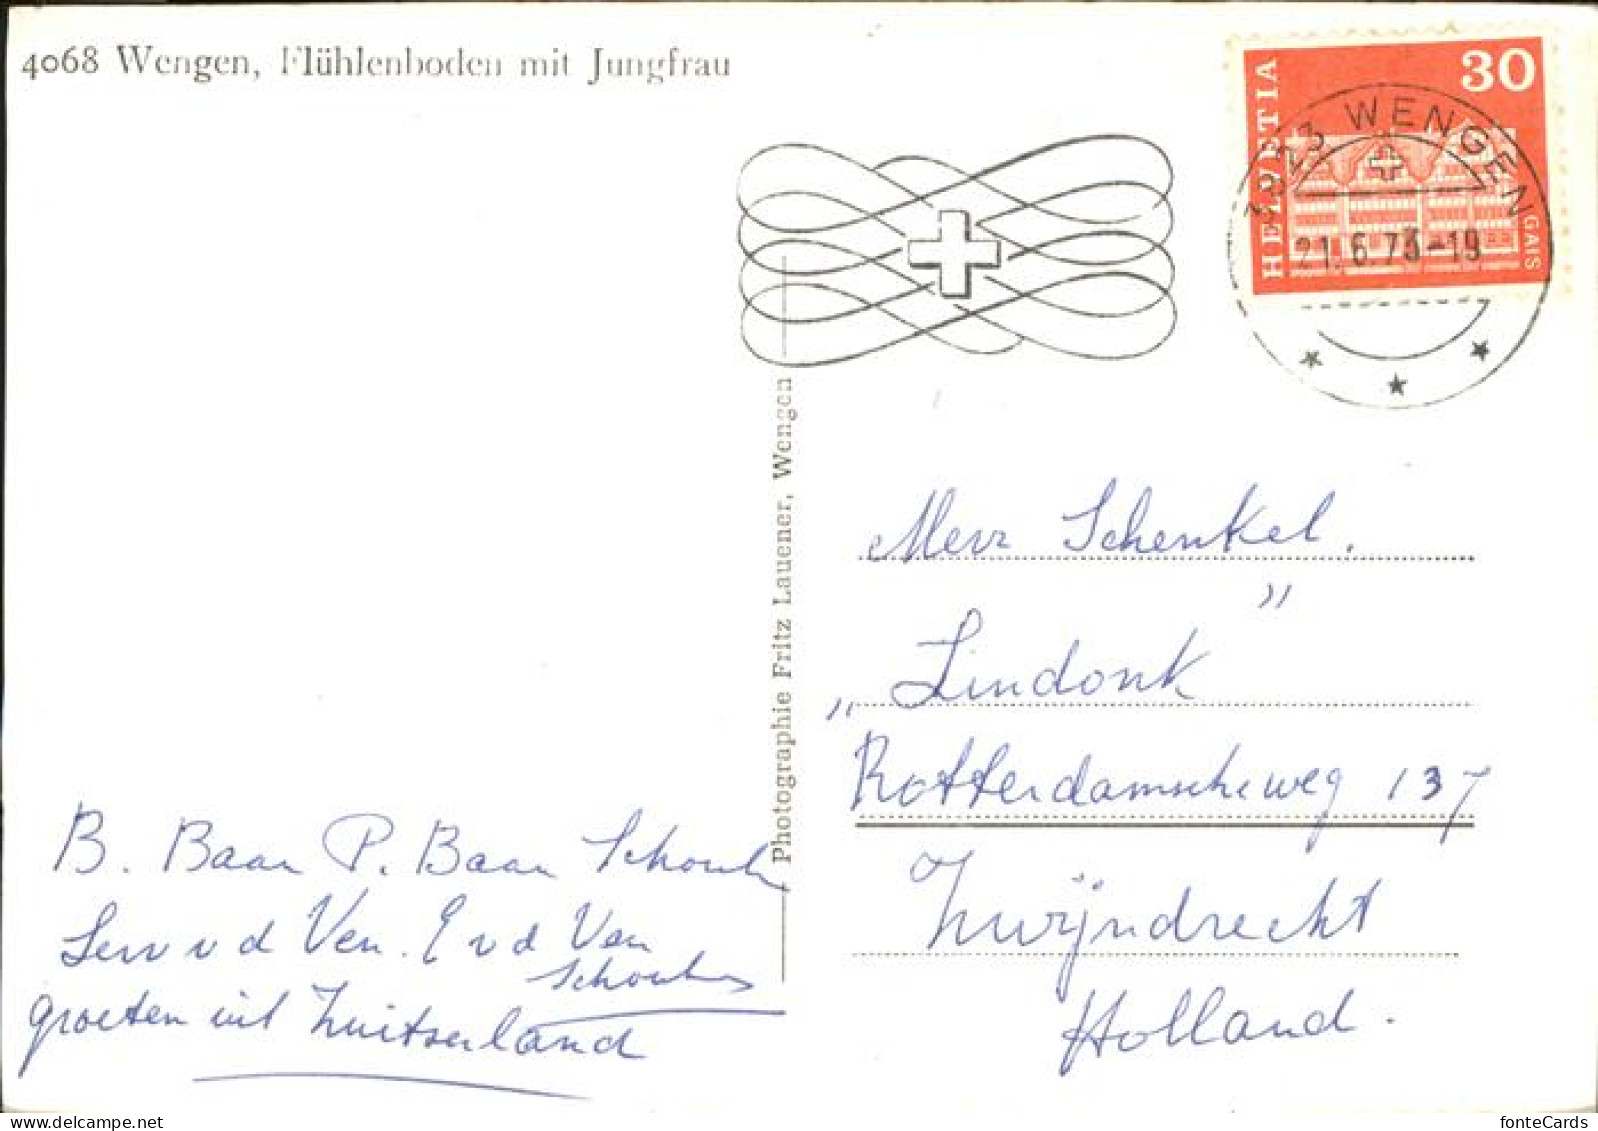 4068 Wengen, Flühlenboden mit Jungfrau
HELVETIA
30
GAIS
3823 WENGEN
21.6.73-19
Photographie Fritz Lauener, Wengen
Mevr Schenkel.
„Lindonk”
Rotterdamscheweg 137
Zwijndrecht
Holland.
B. Baan P. Baan Schouten
v d Ven. E v d Ven
Schouten
groeten uit Zwitserland
fonteCards